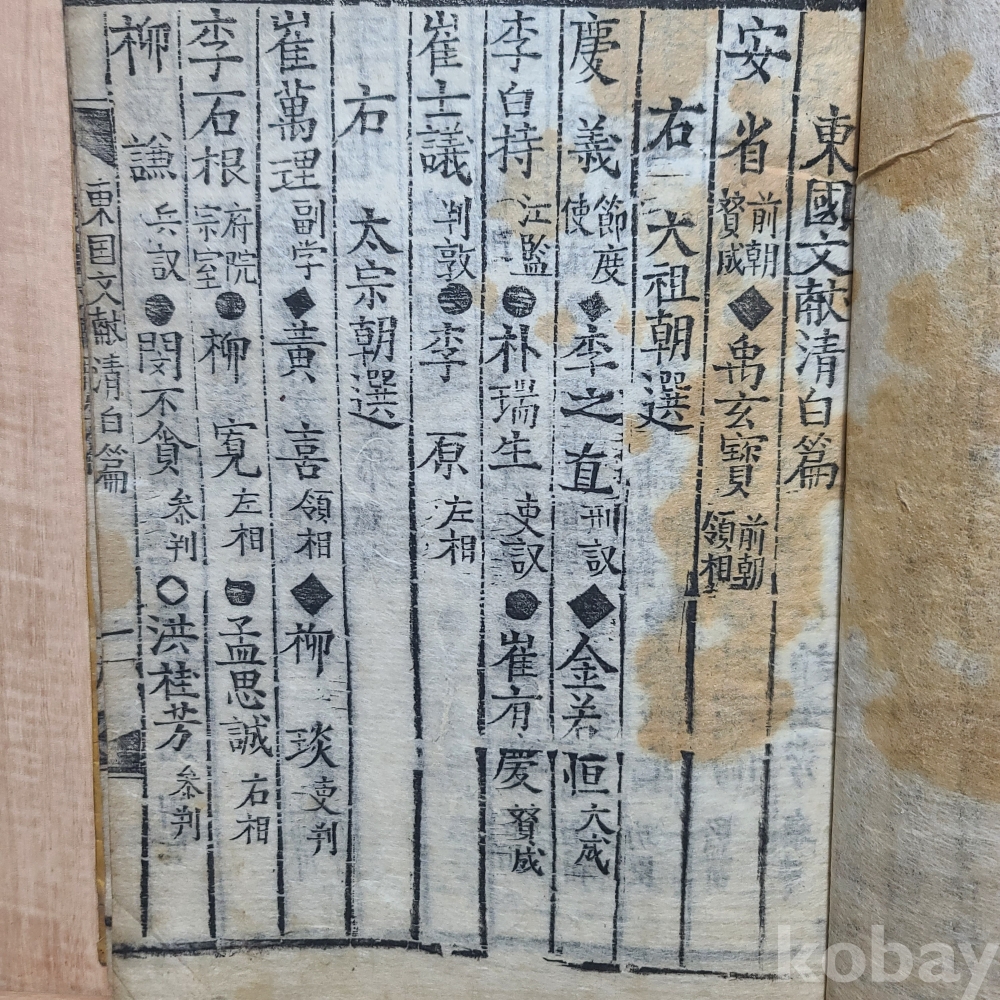 東國文献清白篇
安省 前朝贊成 ◆ 禹玄寳 前朝領相
右大祖朝選
慶義 節度使 ◆ 李之直 刑议 ◆ 金若恒 大成
李白持 江監 ● 朴瑞生 吏议 ● 崔有 贊成
崔士議 判敦 ● 李原 左相
右太宗朝選
崔萬理 副学 ◆ 黃喜 領相 ◆ 柳琰 吏判
李石根 府院宗室 ● 柳寬 左相 ● 孟思誠 右相
柳謙 兵议 ● 閔不貪 叅判 ◇ 洪桂芳 叅判
東国文献清白篇
kobay